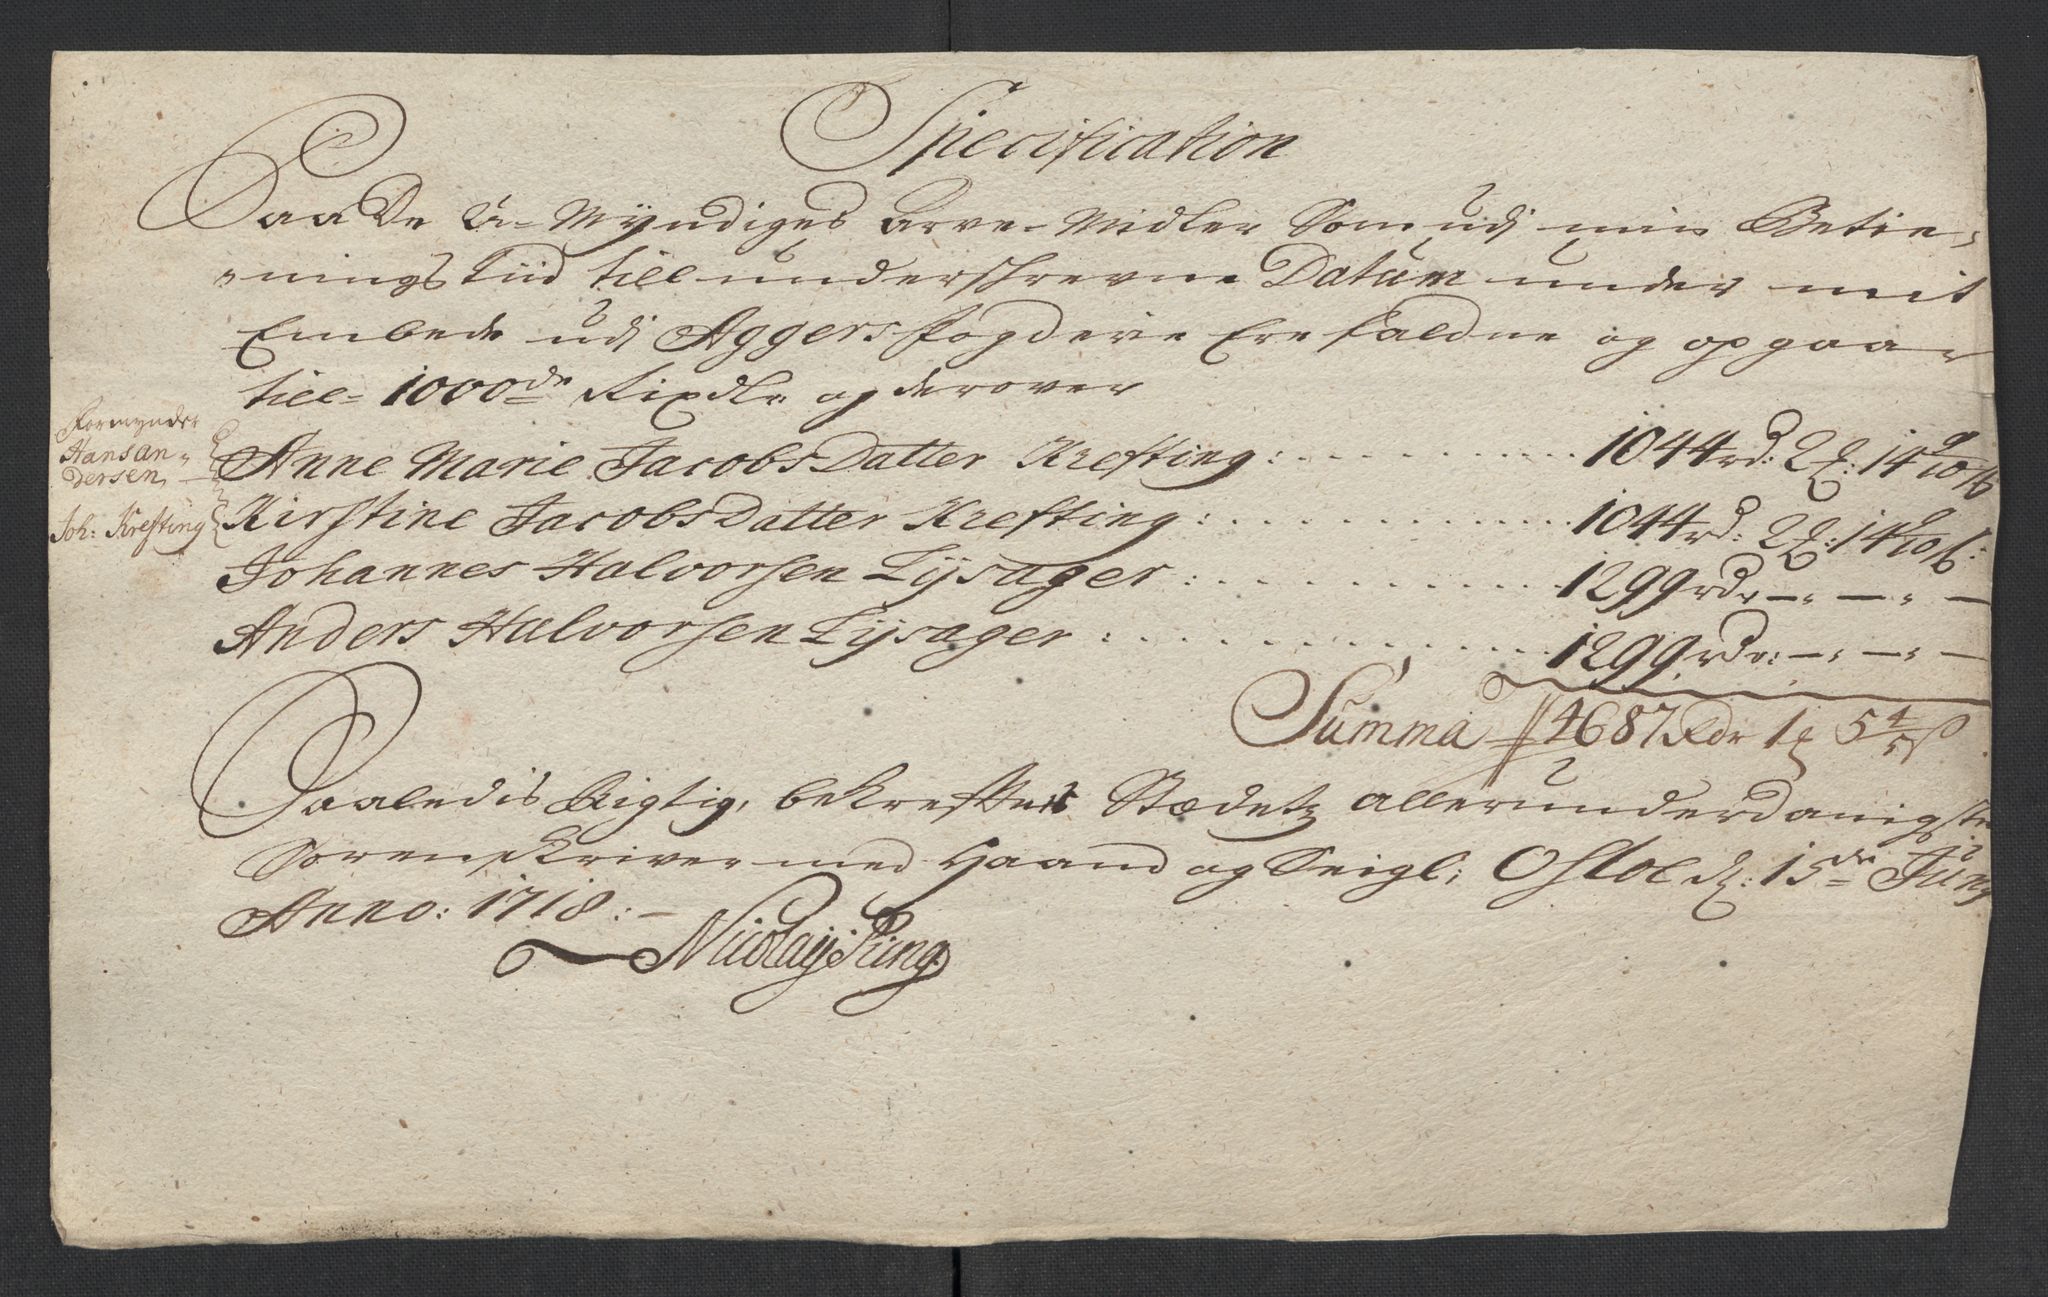 Specification
Paa De U-Myndiges Arve-Midler Som udj min Betie-
nings Tiid till underschrevne Datum under mit
Embede udj Aggers Fogderie Ere faldne og opgaar
till 1000de Rixdlr og derover
Formynder
Hans An-
dersen
Joh: Krefting
Anne Marie JacobsDatter Krefting: 1044rd: 2 ₰: 14 9/10 ß
Kirstine JacobsDatter Krefting: 1044rd: 2 ₰: 14 9/10 ß:
Johannes Halvorsen Lysager: 1299rdr - - -
Anders Halvorsen Lysager: 1299rdr: - - -
Summa 4687 Rdr 1 ₰ 5 4/5 ß
Saaledis Rigtig, bekrefter Stædetz allerunderdanigste
Sorenskriver med Haand og Seigl; Osloe d: 15de Junj
Anno: 1718:-
Nicolaij Pung